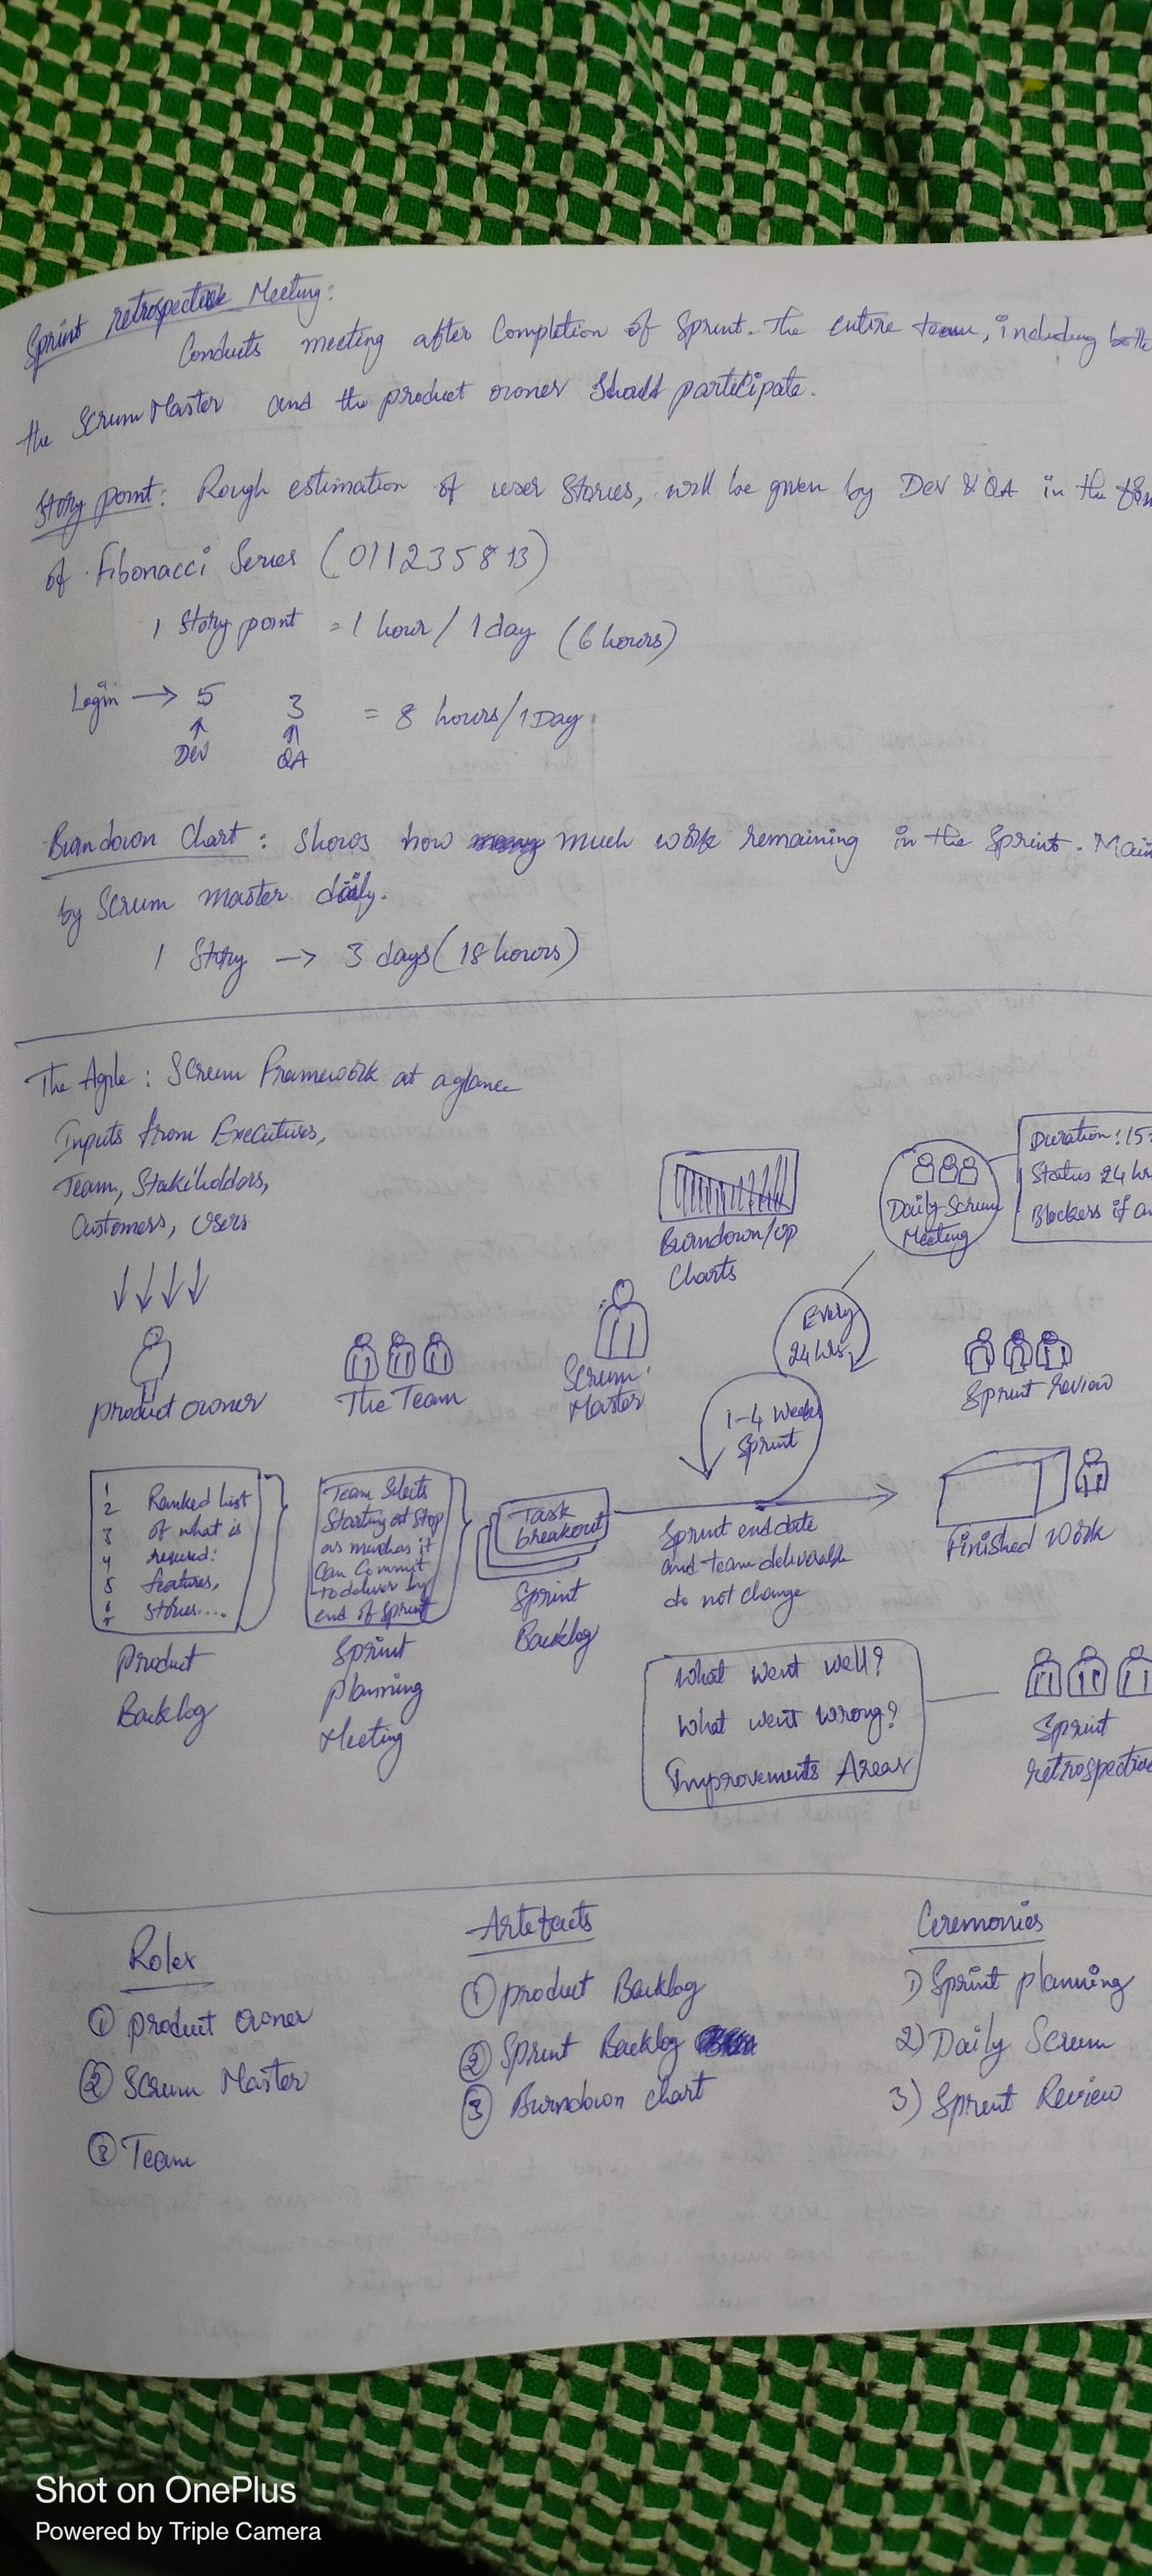 Sprint retrospective Meeting:
Conducts meeting after Completion of Sprint. The entire team, including both
the Scrum Master and the product owner should participate.
Story point: Rough estimation of user Stories, will be given by Dev & QA in the
of Fibonacci Series (0 1 1 2 3 5 8 13)
1 Story point = 1 hour / 1 day (6 hours)
Login → 5 3 = 8 hours/1 Day
Dev QA
Burndown Chart: Shows how much work remaining in the Sprint.
by Scrum master daily.
1 Story → 3 days (18 hours)
The Agile: Scrum Framework at a glance
Inputs from Executives,
Team, Stakeholders,
Customers, Users
Burndown/up
Charts
Daily Scrum
Meeting
Duration: 15
Status 24 hr
Blockers if
Every
24 hrs
product owner
The Team
Scrum
Master
1-4 Weeks
Sprint
Sprint review
1
2
3
4
5
6
7
Ranked list
of what is
required:
features,
stories....
Product
Backlog
Team Selects
Starting at Stop
as much as it
Can Commit
to deliver by
end of Sprint
Sprint
planning
Meeting
Task
breakout
Sprint
Backlog
Sprint end date
and team deliverable
do not change
Finished Work
What went well?
What went wrong?
Improvements Areas
Sprint
retrospective
Roles
① product owner
② Scrum Master
③ Team
Artefacts
① product Backlog
② Sprint Backlog
③ Burndown chart
Ceremonies
1) Sprint planning
2) Daily Scrum
3) Sprint Review
Shot on OnePlus
Powered by Triple Camera